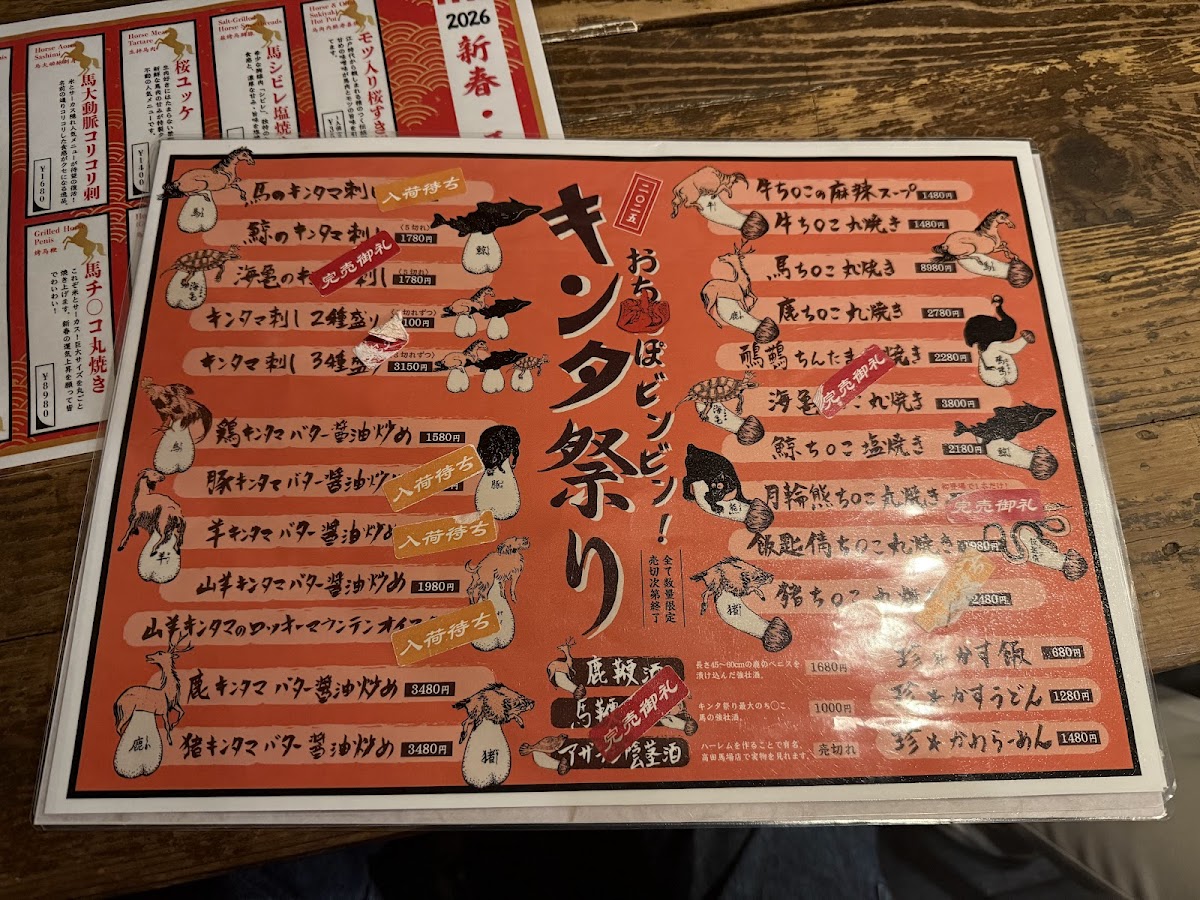 2026
新春・
Horse & O
Sukiyaki
Hot Pot
モツ入り桜すき
Salt-Grilled
馬シビレ塩焼
Horse Me
Tartare
桜ユッケ
不動の人気メニューです。
¥1400
Horse Aor
Sashimi
馬大動脈コリコリ刺
¥1680
Grilled Ho
Penis
烤馬鞭
馬チ〇コ丸焼き
これぞ米とサーカス！巨大サイズを丸ごと
焼き上げます。新春の運気上昇を願って皆
でわいわい！
¥8980
二〇二五
おち
ぽビンビン！
キンタ祭り
全て数量限定
売切次第終了
馬のキンタマ刺し
入荷待ち
鯨のキンタマ刺し
(5切れ)
1780円
海亀のキ
刺し
完売御礼
1780円
キンタマ刺し 2種盛り
切れずつ)
100円
キンタマ刺し 3種盛
切れずつ)
3150円
鶏キンタマバター醤油炒め 1580円
豚キンタマバター醤油炒め
入荷待ち
羊キンタマバター醤油炒め
入荷待ち
山羊キンタマバター醤油炒め 1980円
山羊キンタマのロッキーマウンテンオイ
入荷待ち
鹿キンタマバター醤油炒め 3480円
猪キンタマバター醤油炒め 3480円
牛ち〇この麻辣スープ 1480円
牛ち〇こ丸焼き 1480円
馬ち〇こ丸焼き 8980円
鹿ち〇こ丸焼き 2780円
鴯鶓ちんたま
焼き 2280円
完売御礼
海亀
こ丸焼き 3800円
鯨ち〇こ塩焼き 2180円
月輪熊ち〇こ丸焼き
完売御礼
飯匙倩ち〇こ丸焼き
980円
猪ち〇こ丸焼
2480円
珍*かす飯 680円
珍*かすうどん 1280円
珍*かすらーめん 1480円
鹿鞭酒
長さ45～60cmの鹿のペニスを
漬け込んだ強壮酒。
1680円
馬鞭
完売御礼
キンタ祭り最大のち〇こ、
馬の強壮酒。
1000円
アザ
陰茎酒
ハーレムを作ることで有名。
高田馬場店で実物を見れます。
売切れ